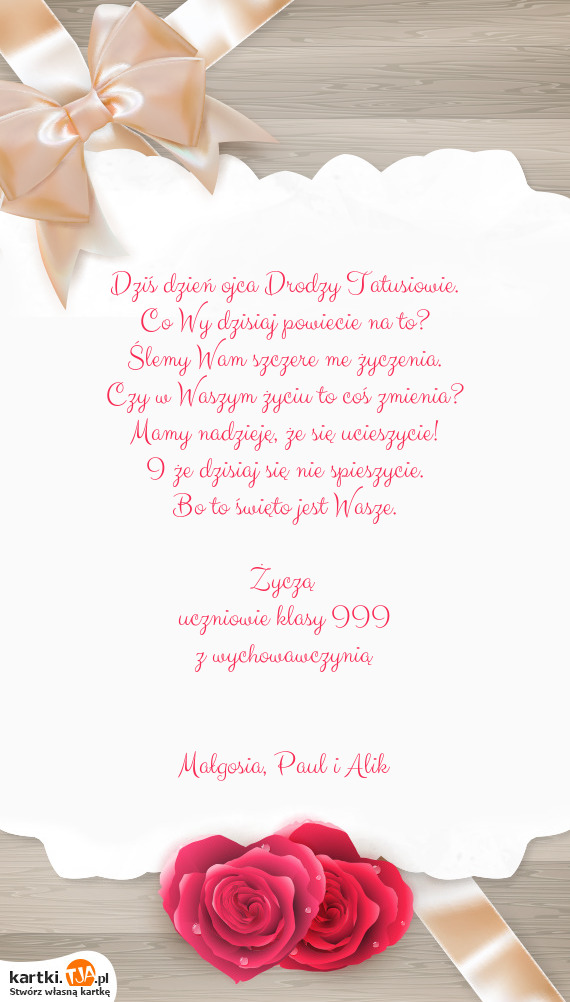 Dziś dzień ojca Drodzy Tatusiowie.
Co Wy dzisiaj powiecie na to?
Ślemy Wam szczere me życzenia.
Czy w Waszym życiu to coś zmienia?
Mamy nadzieję, że się ucieszycie!
I że dzisiaj się nie spieszycie.
Bo to święto jest Wasze.
Życzą
uczniowie klasy III
z wychowawczynią
Małgosia, Paul i Alik
kartki.TJA.pl
Stwórz własną kartkę